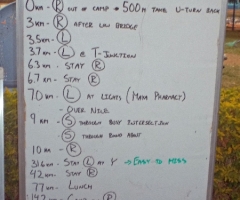 0km - R OUT OF CAMP → 500m TAKE U-TURN BACK
3km - R AFTER UN BRIDGE
3.5km - L
3.7km - L @ T-JUNCTION
6.3km - STAY R
6.7km - STAY R
7.0km L AT LIGHTS (MAIN PHARMACY)
- OVER NILE
9km - S THROUGH BUSY INTERSECTION
S THROUGH ROUND ABOUT
10km - R
31.6km - STAY L AT Y → EAST TO MBSS
42km - STAY R
77km - LUNCH